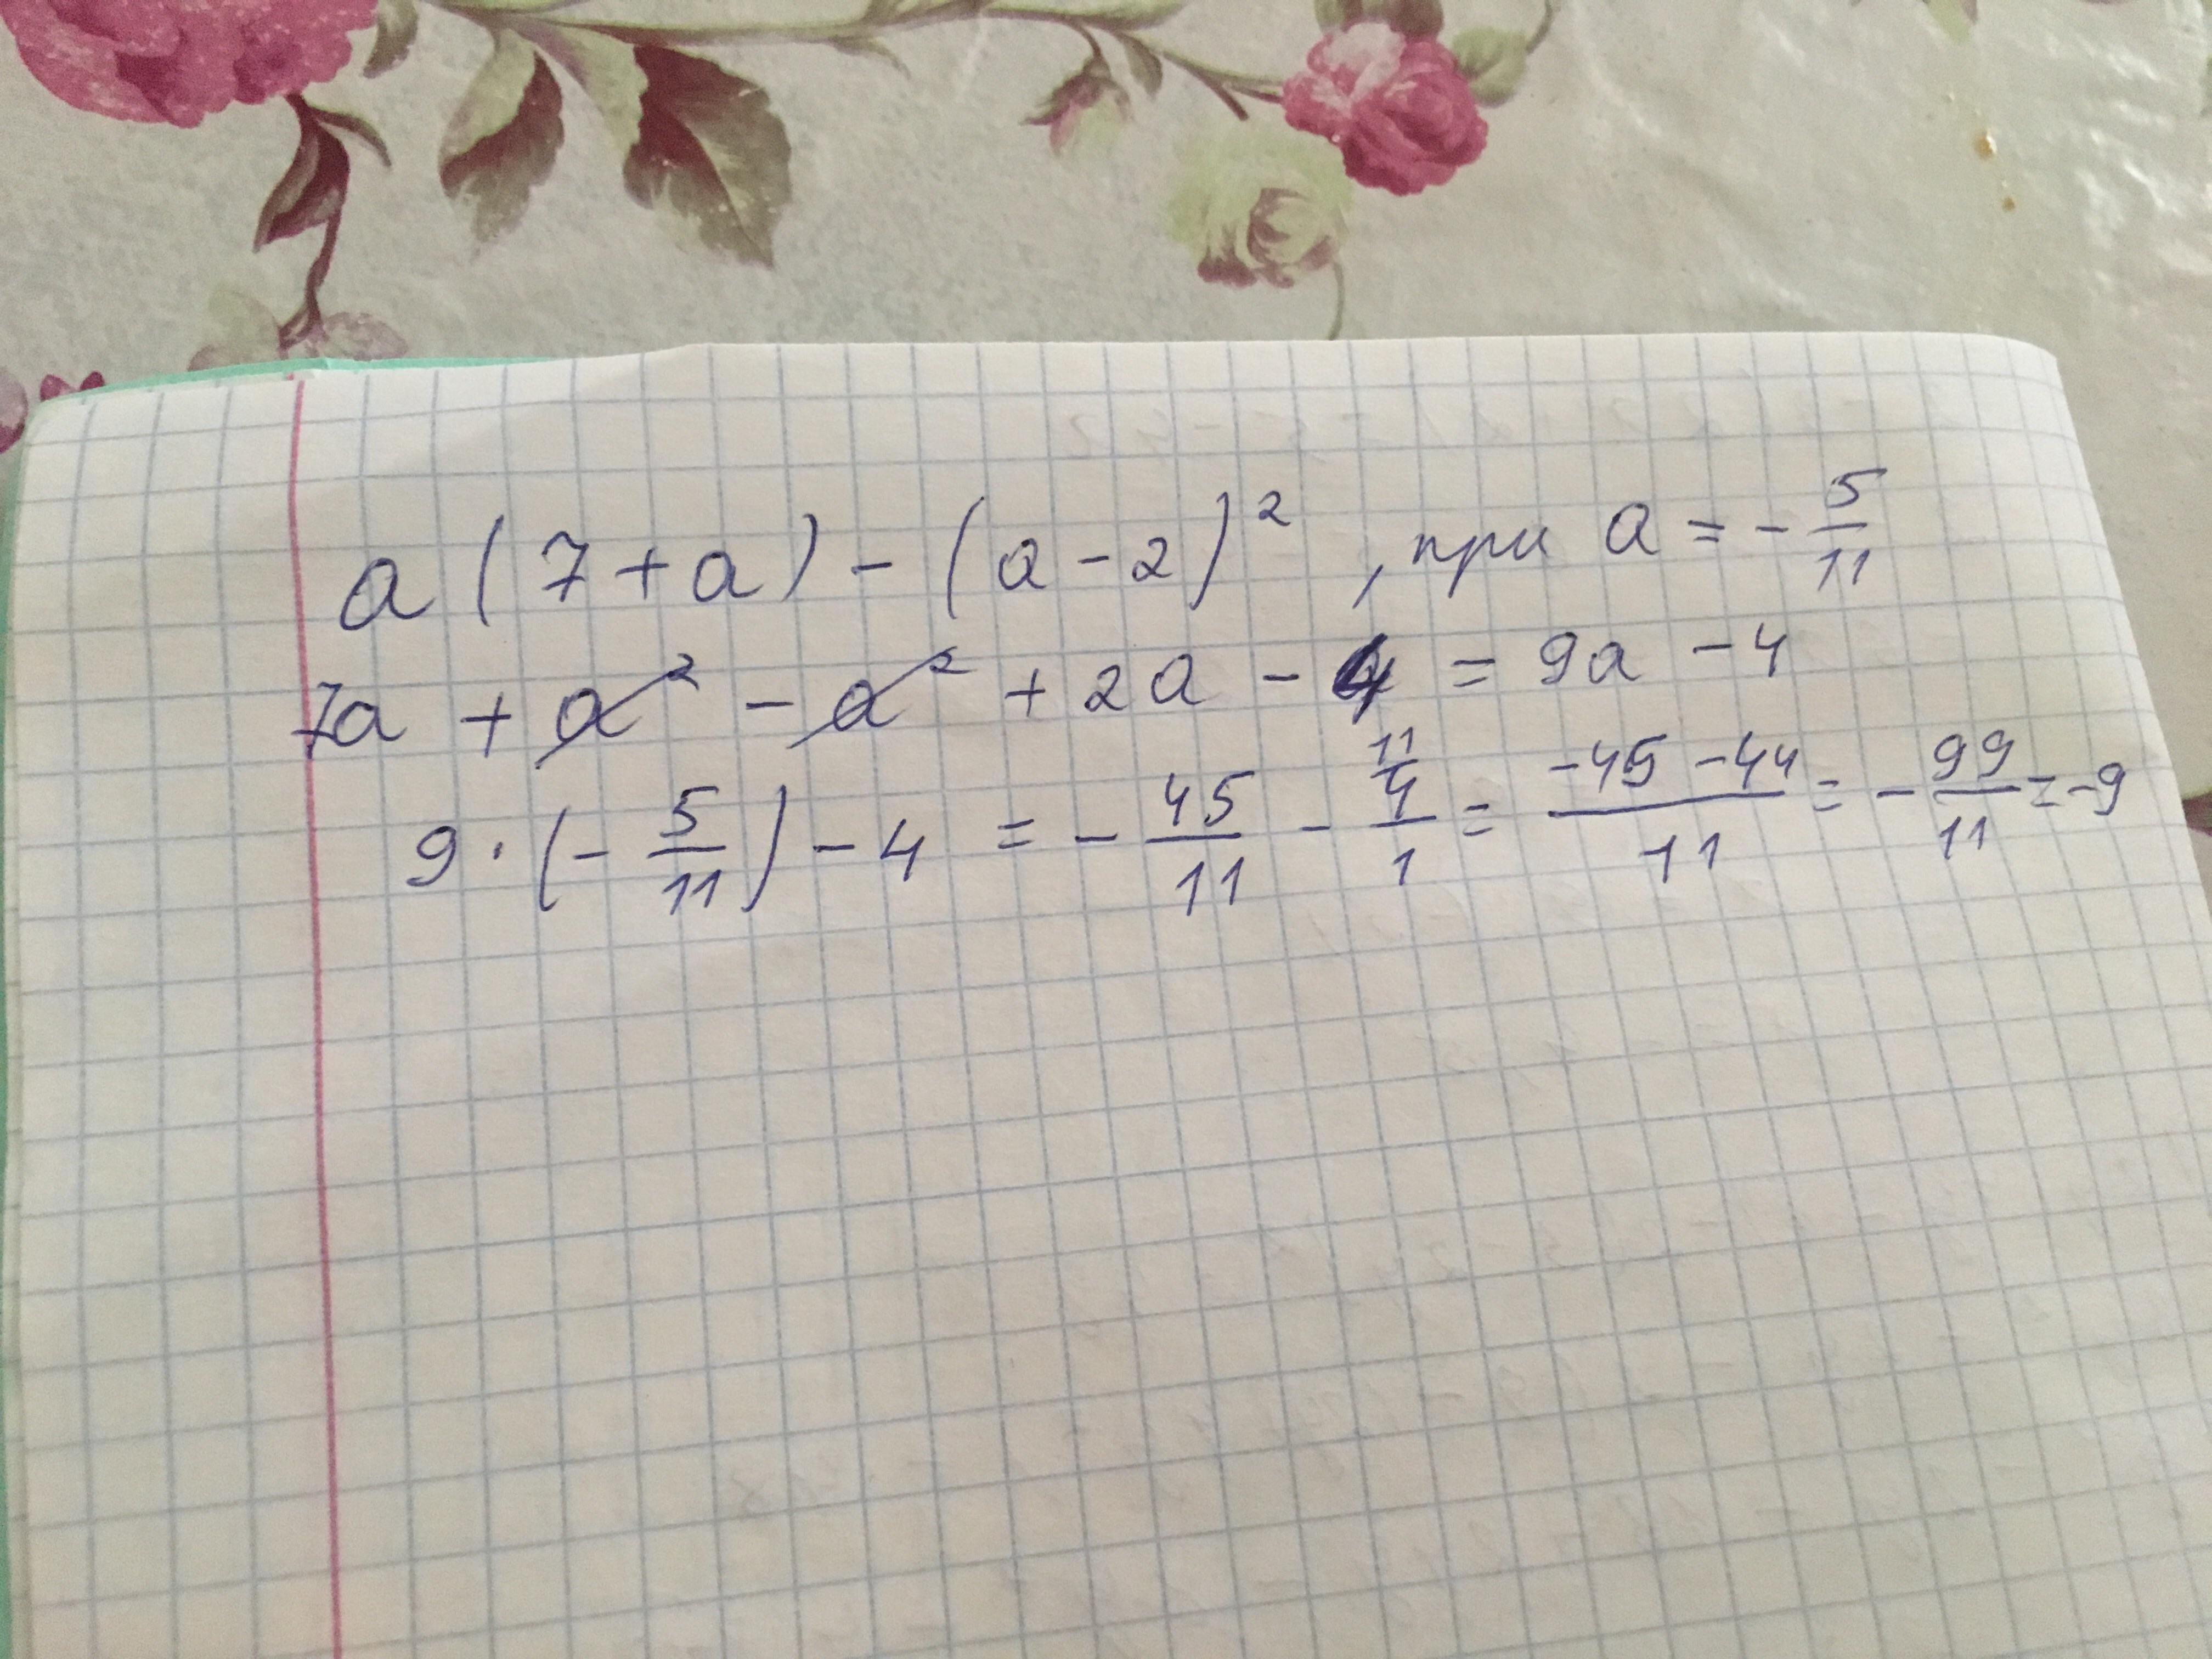 a(7+a)-(a-2)², при a=-5/11
7a+a²-a²+2a-4=9a-4
9·(-5/11)-4=-45/11-4/1 11=(-45-44)/11=-99/11=-9